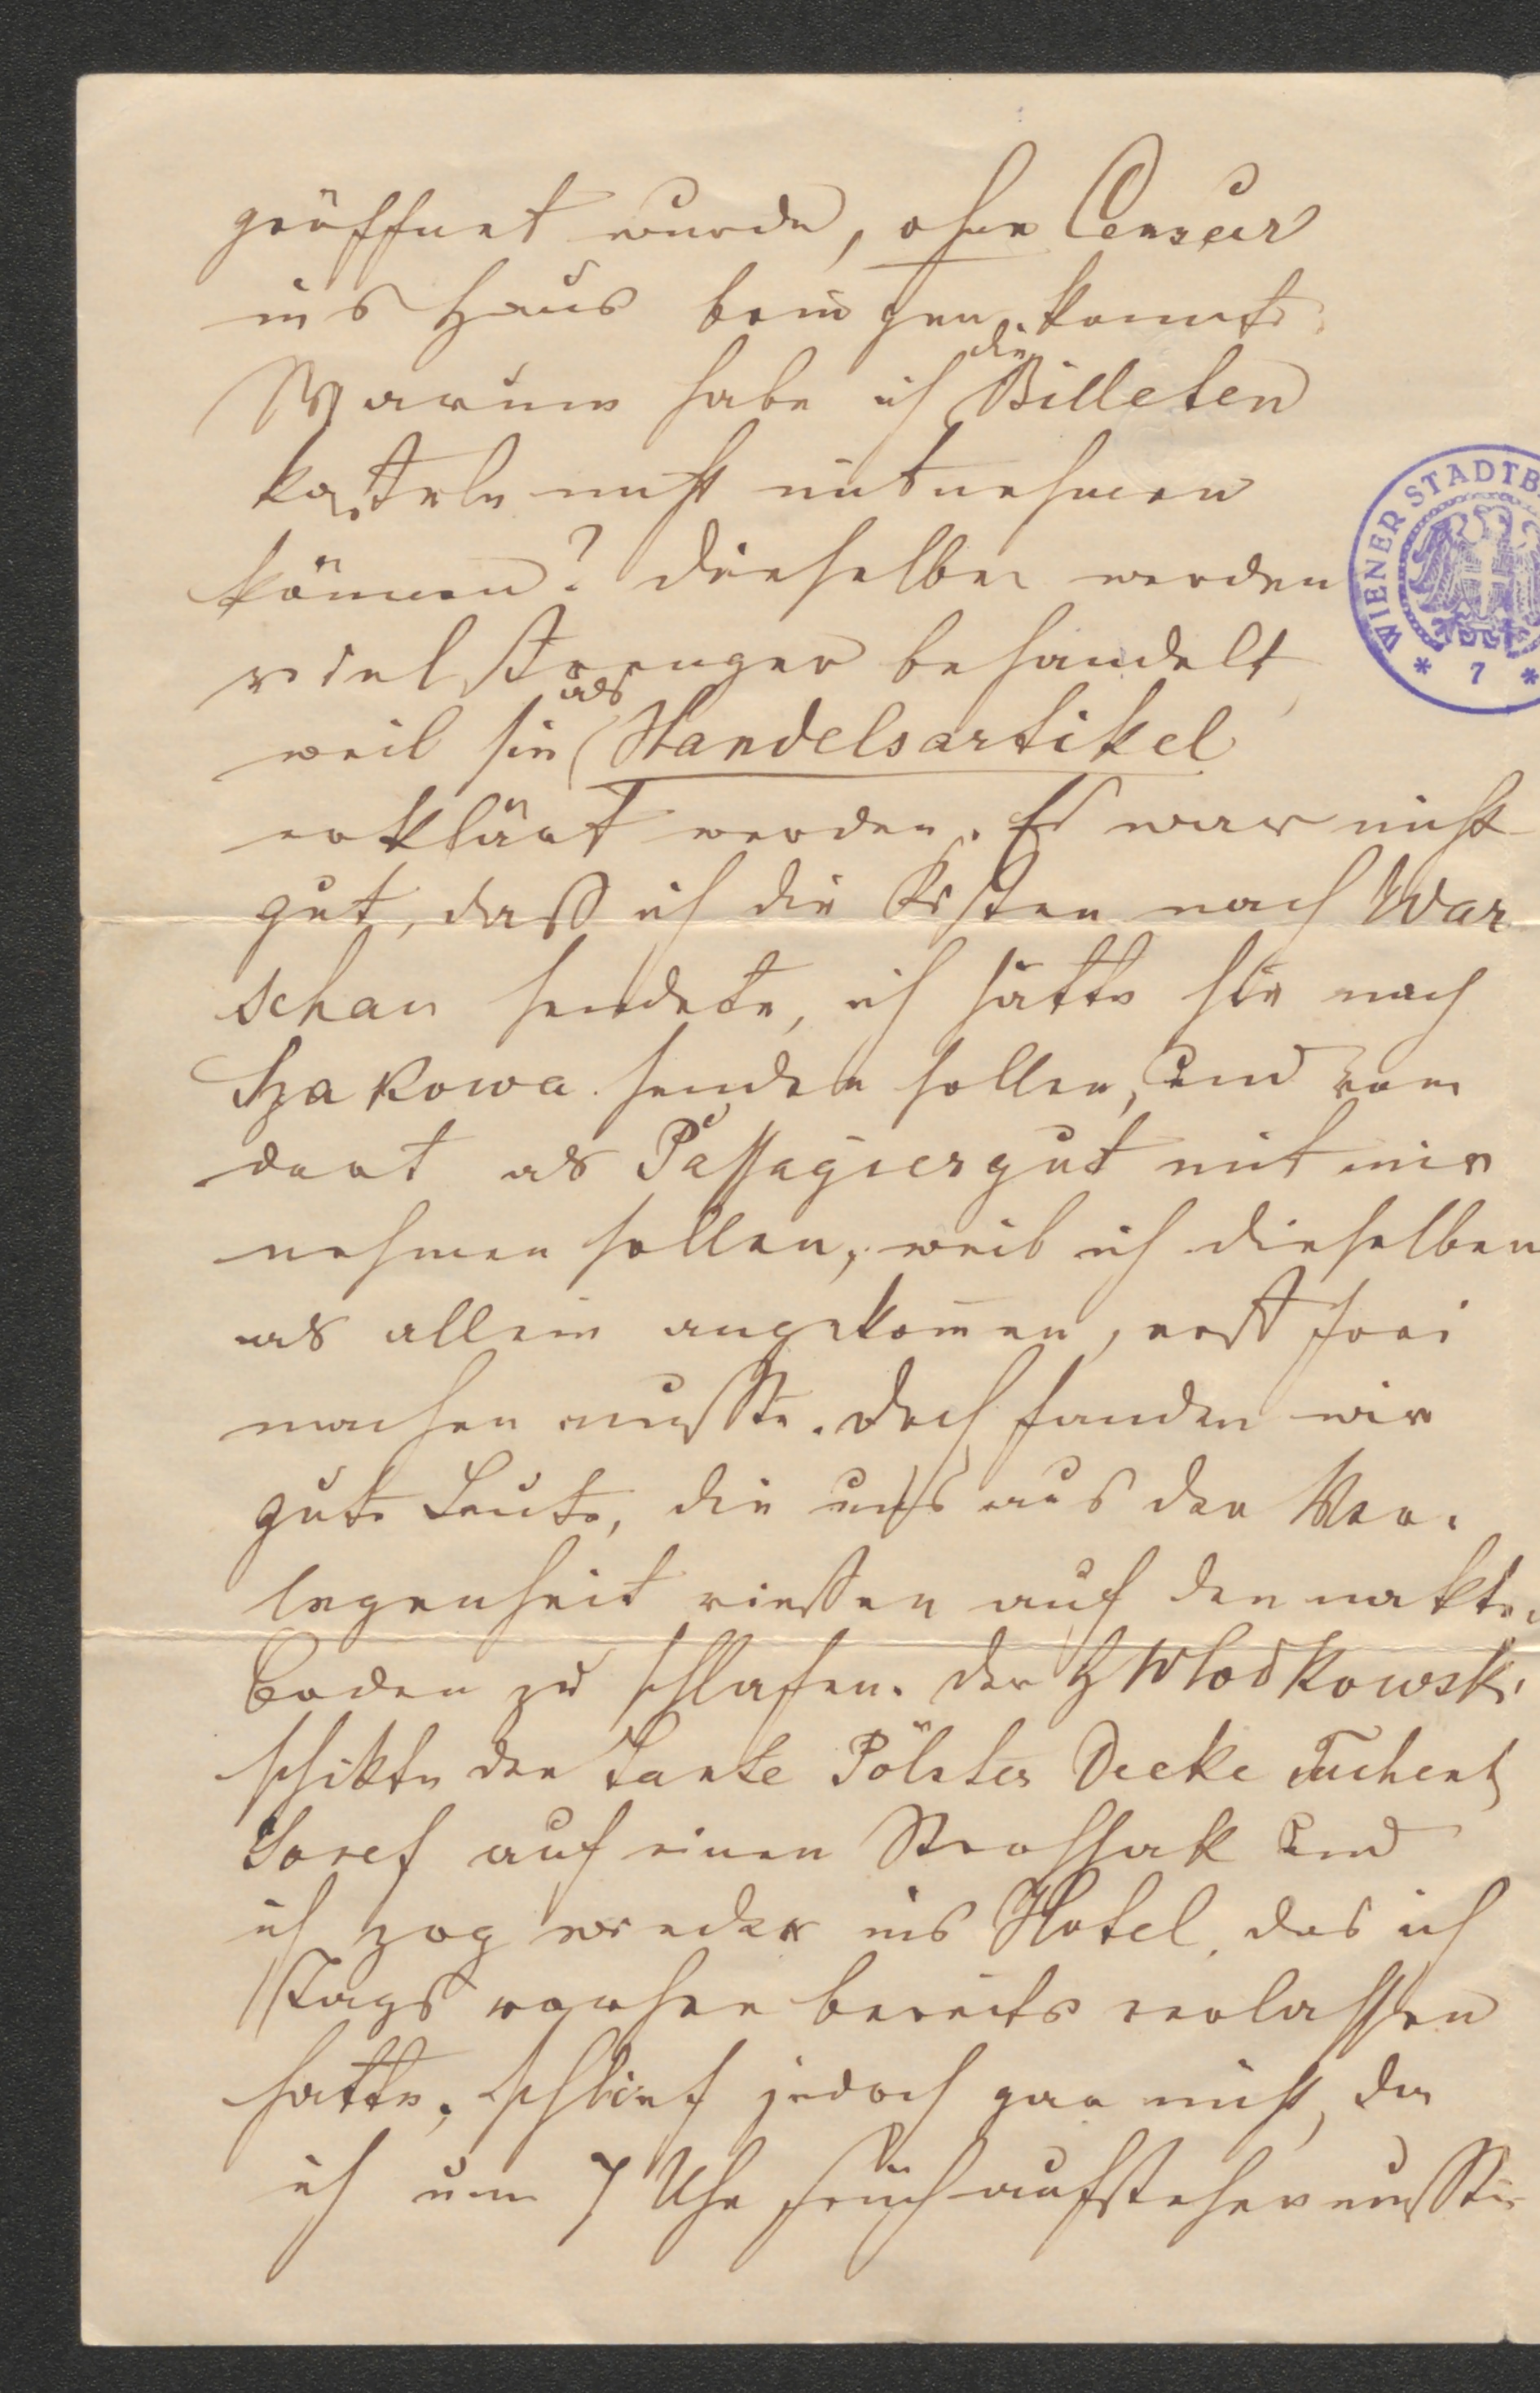 geöffnet wurde, ohne Censur
ins Haus bringen konnte.
Warum habe ich die Billeten
kasteln nicht mitnehmen
können? dieselben werden
viel strenger behandelt,
weil sie als Handelsartikel
erklärt werden. Es war nicht
gut, daß ich die Kisten nach War
schau sendete, ich hätte sie nach
Szakowa senden sollen, und von
dort als Passagiergut mit mir
nehmen sollen, weil ich dieselben
als allein angekom̄en, erst frei
machen mußte. Doch fanden wir
gute Leute, die uns aus der Ver-
legenheit rießen auf den nakten
Boden zu schlafen. Der H Wlodkowski
schikte der Tante Pölster Decke Tuchent
Josef auf einen Strohsak und
ich zog wieder ins Hotel, das ich
Tags vorher bereits verlassen
hatte, schlief jedoch gar nicht, da
ich um 7 Uhr früh aufstehen mußte
WIENER STADTB
* 7 *